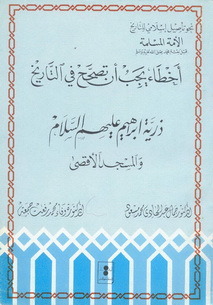 نحو تأصيل إسلامي للتاريخ
الأمة المسلمة
أخطاء يجب أن تصحح في التاريخ
ذرية ابراهيم عليهم السلام
والمسجد الأقصى
الدكتور جمال عبد الهادي محمد مسعود
الدكتورة وفاء محمد رفعت جمعة